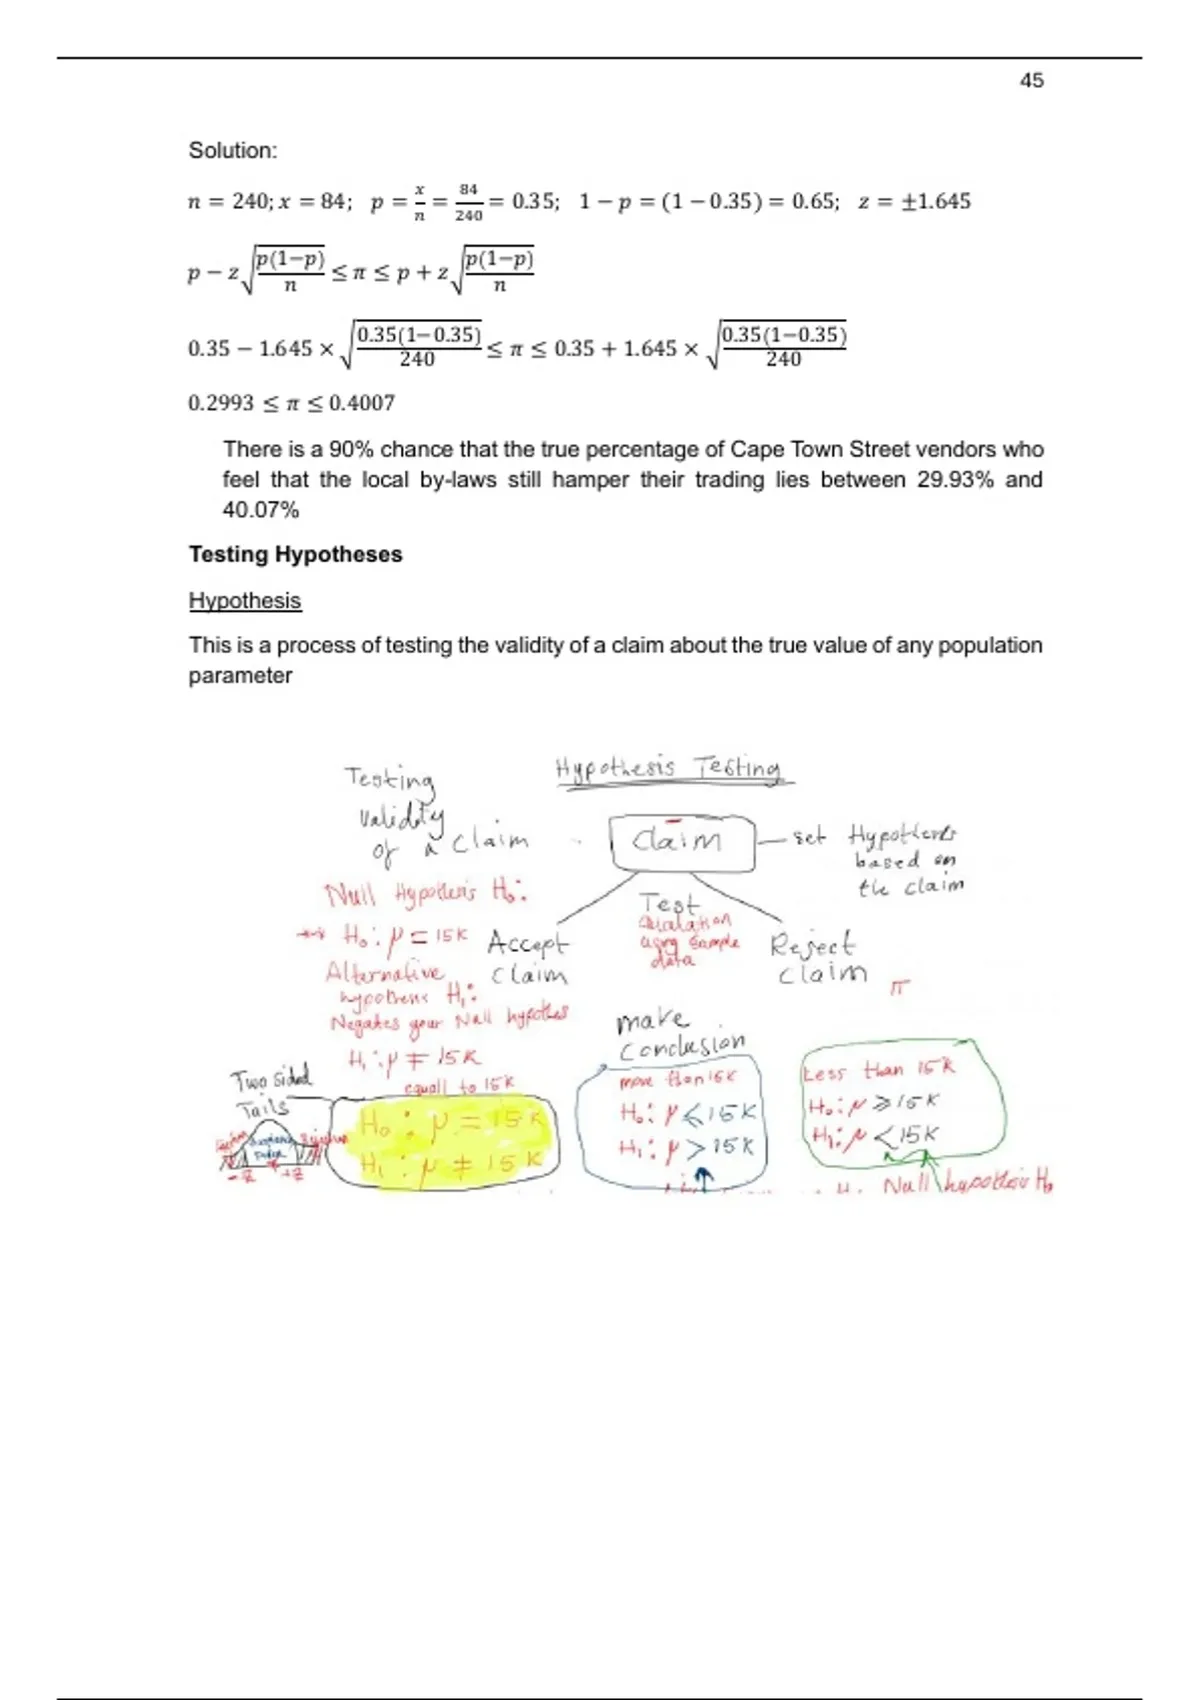 45
Solution:
n = 240; x = 84; p = x/n = 84/240 = 0.35; 1 − p = (1 − 0.35) = 0.65; z = ±1.645
p − z√(p(1−p)/n) ≤ π ≤ p + z√(p(1−p)/n)
0.35 − 1.645 × √(0.35(1−0.35)/240) ≤ π ≤ 0.35 + 1.645 × √(0.35(1−0.35)/240)
0.2993 ≤ π ≤ 0.4007
There is a 90% chance that the true percentage of Cape Town Street vendors who
feel that the local by-laws still hamper their trading lies between 29.93% and
40.07%
Testing Hypotheses
Hypothesis
This is a process of testing the validity of a claim about the true value of any population
parameter
Hypothesis Testing
Testing
validity
of a claim
Claim
set Hypothesis
based on
the claim
Null Hypothesis H₀:
H₀: μ = 15K
Alternative
hypothesis H₁:
Negates your Null hypothes
H₁: μ ≠ 15K
Accept
claim
Test
Calculation
using sample
data
Reject
claim
π
make
Conclusion
Two sided
Tails
− z
+ z
equall to 15K
H₀: μ = 15K
H₁: μ ≠ 15K
more than 15K
H₀: μ ⩽ 15K
H₁: μ > 15K
Less than 15K
H₀: μ ⩾ 15K
H₁: μ < 15K
Null hypothesis H₀